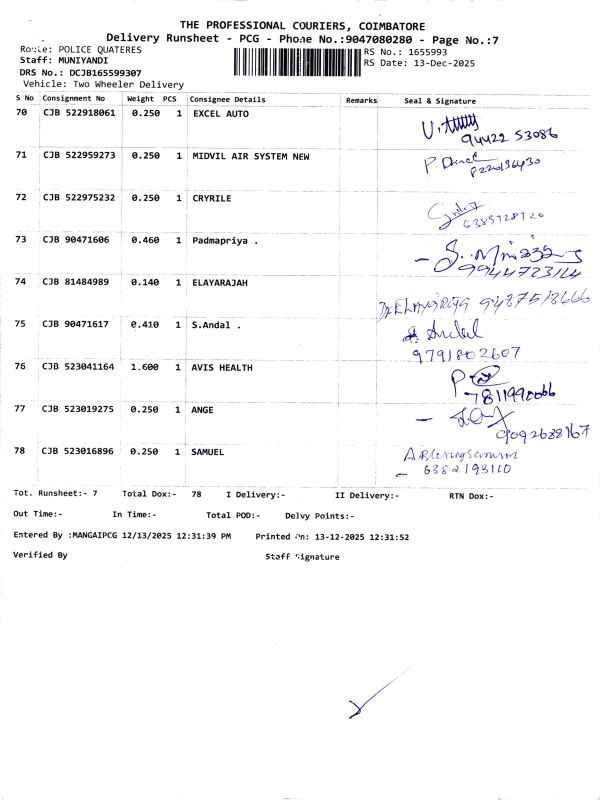 THE PROFESSIONAL COURIERS, COIMBATORE
Delivery Runsheet - PCG - Phone No.:9047080280 - Page No.:7
Route: POLICE QUATERES
RS No.: 1655993
Staff: MUNIYANDI
RS Date: 13-Dec-2025
DRS No.: DCJB165599307
Vehicle: Two Wheeler Delivery
S No Consignment No Weight PCS Consignee Details Remarks Seal & Signature
70 CJB 522918061 0.250 1 EXCEL AUTO
94422 53086
71 CJB 522959273 0.250 1 MIDVIL AIR SYSTEM NEW
8220136430
72 CJB 522975232 0.250 1 CRYRILE
6385928920
73 CJB 90471606 0.460 1 Padmapriya .
9944723114
74 CJB 81484989 0.140 1 ELAYARAJAH
9487518666
75 CJB 90471617 0.410 1 S.Andal .
Andal
9791802607
76 CJB 523041164 1.600 1 AVIS HEALTH
7811990066
77 CJB 523019275 0.250 1 ANGE
9092688167
78 CJB 523016896 0.250 1 SAMUEL
6382193110
Tot. Runsheet:- 7 Total Dox:- 78 I Delivery:- II Delivery:- RTN Dox:-
Out Time:- In Time:- Total POD:- Delvy Points:-
Entered By :MANGAIPCG 12/13/2025 12:31:39 PM Printed On: 13-12-2025 12:31:52
Verified By Staff Signature